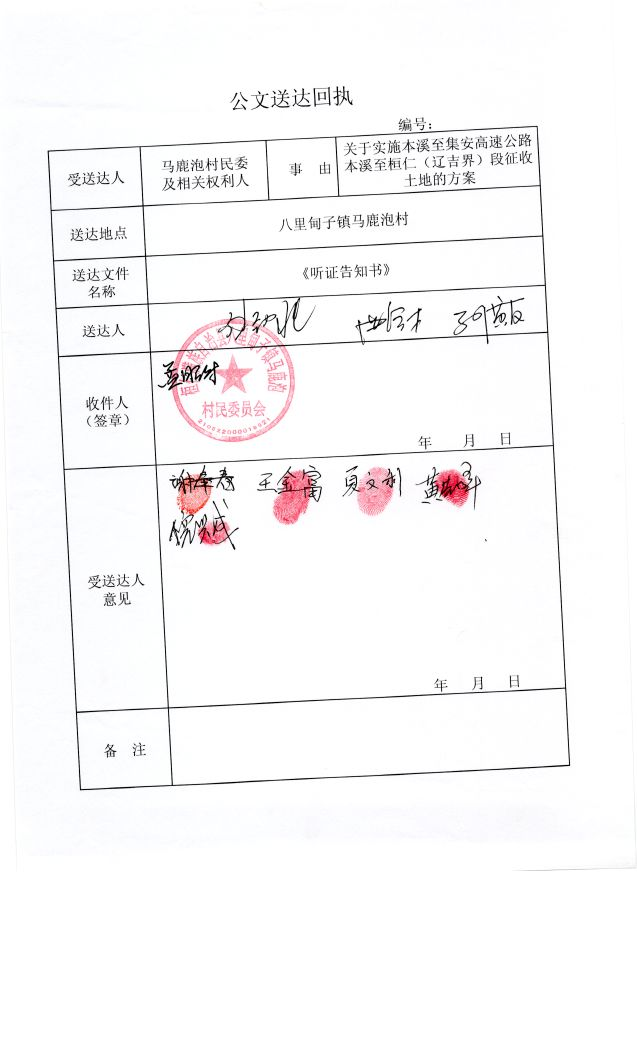 公文送达回执
编号：
受送达人
马鹿泡村民委
及相关权利人
事 由
关于实施本溪至集安高速公路
本溪至桓仁（辽吉界）段征收
土地的方案
送达地点
八里甸子镇马鹿泡村
送达文件
名称
《听证告知书》
送达人
收件人
（签章）
村民委员会
年 月 日
受送达人
意见
王金富
夏文利
年 月 日
备 注